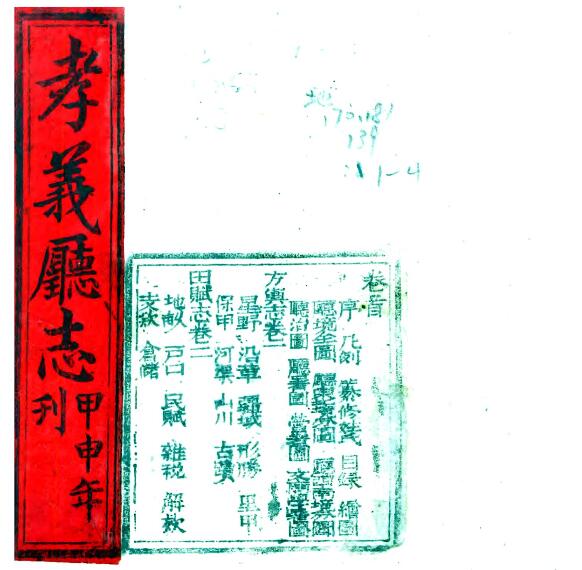 孝義廳志
甲申年
刊
地
139
1-4
卷首
序 凡例 纂修 目錄 繪圖
廳境全圖
廳治圖 廳署圖 營署圖 文廟學署圖
方輿志卷一
星野 沿革 疆域 形勝 里甲
保甲 河渠 山川 古蹟
田賦志卷二
地畝 戶口 民賦 雜税 解款
支款 倉儲